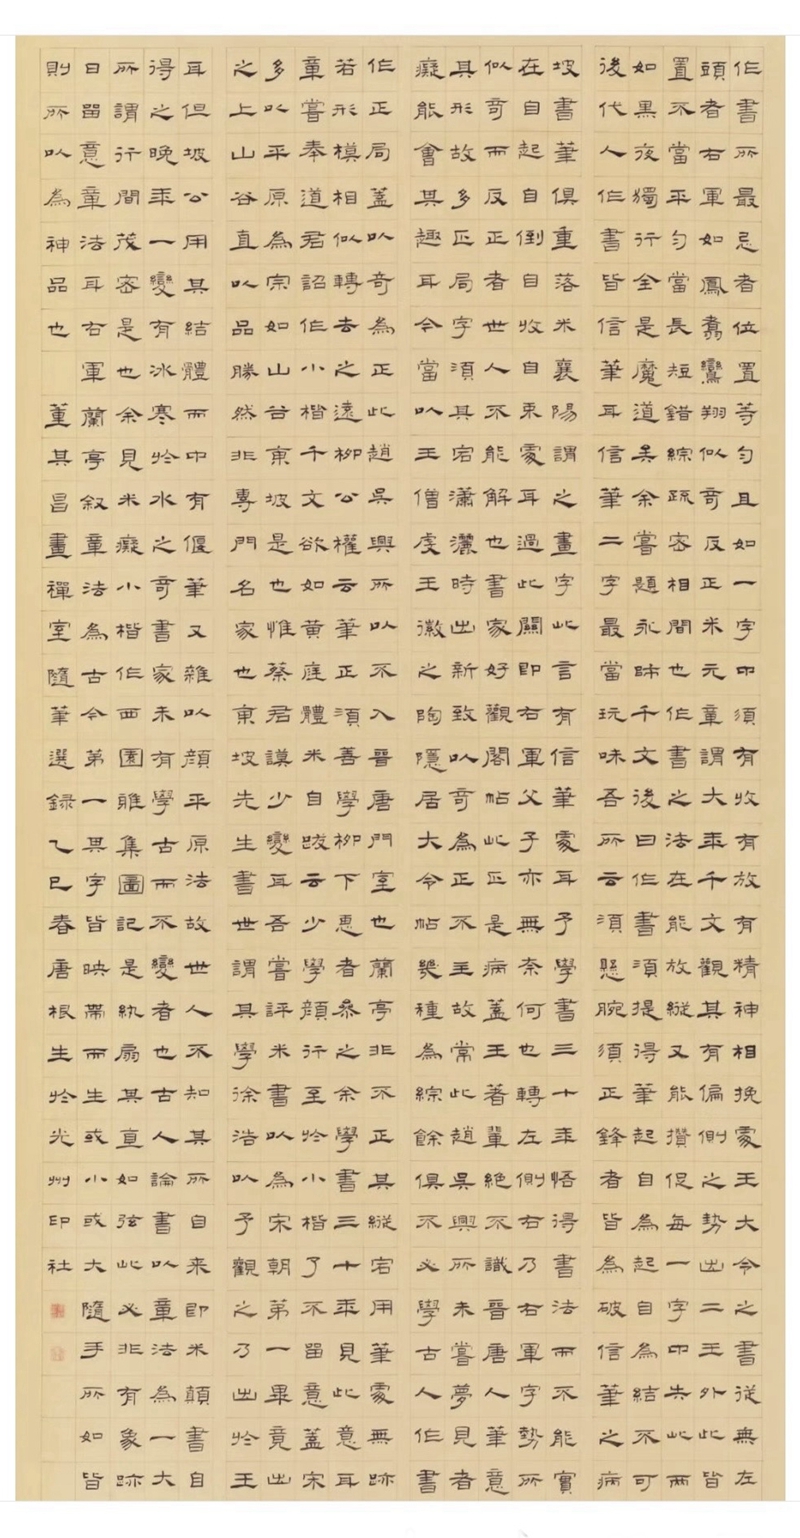 作書所最忌者位置等勻且如一字中須有收有放有精神相挽處王大令之書從無左
頭者右軍如鳳翥鸞翔似奇反正米元章謂大年千文觀其有偏側之勢出二王外此皆
置不當平勻當長短錯綜疏密相間也作書之法在能放縱又能攢促每一字中失此兩
如黑夜獨行全是魔道矣余嘗題永師千文後曰作書須提得筆起自為起自為結不可
後代人作書皆信筆耳信筆二字最當玩味吾所云須懸腕須正鋒者皆為破信筆之病
坡書筆俱重落米襄陽謂之畫字此言有信筆處耳予學書三十年悟得書法而不能實
在自起自倒自收自束處耳過此關即右軍父子亦無奈何也轉左側右乃右軍字勢所
似奇而反正者世人不能解也書家好觀閣帖此正是病蓋王著輩絕不識晉唐人筆意
其形故多正局字須其宕瀟灑時出新致以奇為正不主故常此趙吳興所未嘗夢見者
癡能會其趣耳今當以王僧虔王徽之陶隱居大令帖幾種為綜餘俱不必學古人作書
作正局蓋以奇為正此趙吳興所以不入晉唐門室也蘭亭非不正其縱宕用筆處無跡
若形模相似轉去之遠柳公權云筆正須善學柳下惠者參之余學書三十年見此意耳
章嘗奉道君詔作小楷千文欲如黃庭體米自跋云少學顏行至於小楷了不留意蓋宋
多以平原為宗如山谷東坡是也惟蔡君謨少變耳吾嘗評米書以為宋朝第一畢竟出
之上山谷直以品勝然非專門名家也東坡先生書世謂其學徐浩以予觀之乃出於王
耳但坡公用其結體而中有偃筆又雜以顏平原法故世人不知其所自來即米顛書自
得之晚年一變有冰寒於水之奇書家未有學古而不變者也古人論書以章法為一大
所謂行間茂密是也余見米癡小楷作西園雅集圖記是紈扇其直如弦此必非有象跡
日留意章法耳右軍蘭亭敘章法為古今第一其字皆映帶而生或小或大隨手所如皆
則所以為神品也 董其昌畫禪室隨筆選錄乙巳春唐根生於光州印社